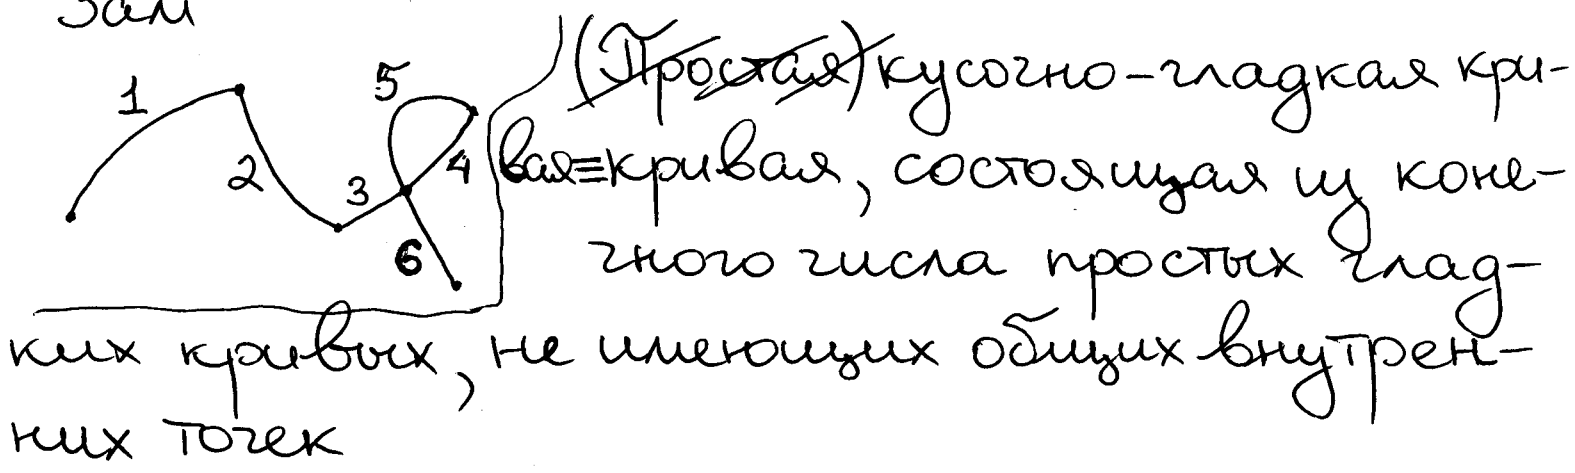 Зам
1 2 3 4 5 6
(Простая) кусочно-гладкая кри-
вая≡кривая, состоящая из коне-
чного числа простых глад-
ких кривых, не имеющих общих внутрен-
них точек